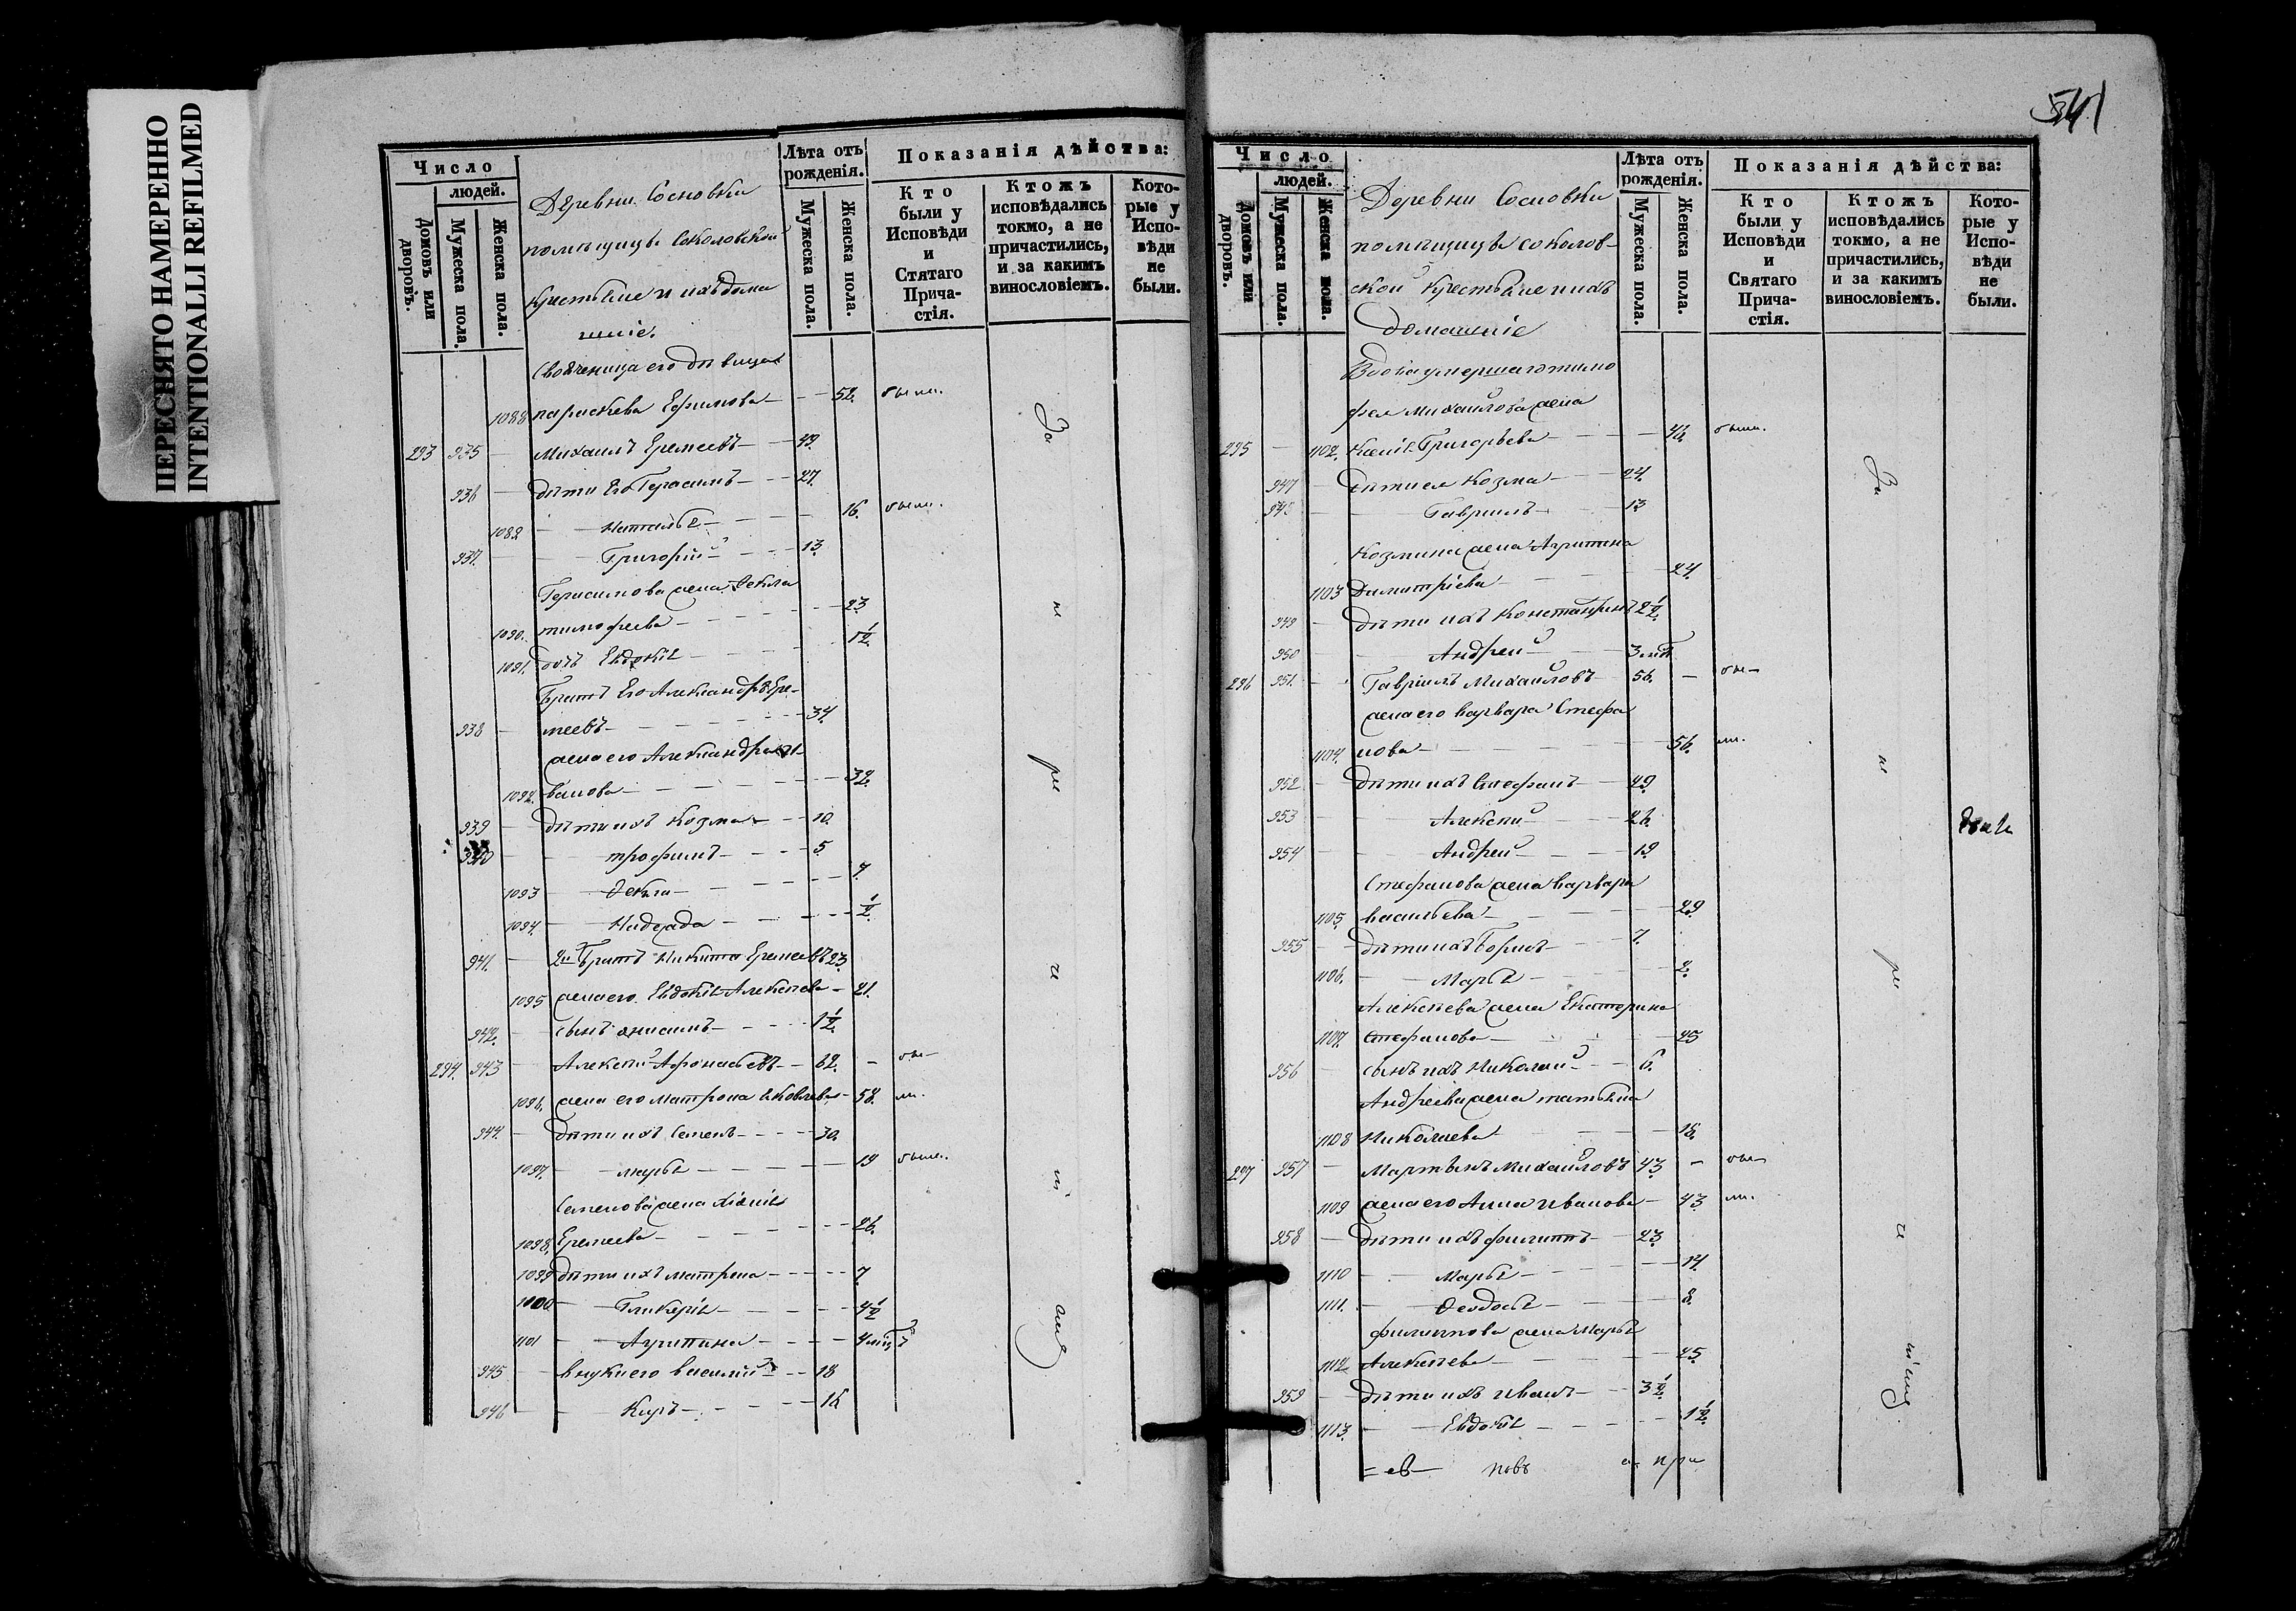 ПЕРЕСНЯТО НАМЕРЕННО
INTENTIONALLI REFILMED
Число
людей.
Домовъ или дворовъ.
Мужеска пола.
Женска пола.
Деревни Сосновки
помѣщицы Соколовской
крестьяне и ихъ дома
шніе.
Лѣта отъ рожденія.
Мужеска пола.
Женска пола.
Показанія дѣйства:
Кто были у Исповѣди и Стятаго Причастія.
Ктожъ исповѣдались токмо, а не причастились, и за какимъ винословіемъ.
Которые у Исповѣди не были.
Своячeница его дѣвица
1088 параскева Ефимова 52. были.
293 935 Михаилъ Еремеевъ 49.
936 дѣти Его Герасимъ 27.
1089 Наталья 16. были.
937. Григорій 13.
Герасимова жена Ѳекла
1090. тимофеева 23
1091. дочь Евдокія 1½
Братъ Его Александръ Ере-
938 меевъ 34.
жена его Александра И-
1092. ванова 32.
939 дѣти ихъ Козма 10.
940 трофимъ 5.
1093 Ѳекла 7.
1094. Надежда ½
941. 2й Братъ Никита Еремеевъ 23.
1095 жена его Евдокія Алексеева 21.
942. сынъ онисимъ 1½
294. 943 Алексей Афонасьевъ 62. бы-
1096. жена его Матрона Яковлева 58. ли.
944. дѣти ихъ Семенъ 30.
1097. марья 19 были.
Семенова жена Ксенія
1098. Еремеева 26.
1099 дѣти ихъ матрена 7
1100 Гликерія 4½
1101 Агрипина 4 мцъ
945 внуки его василий 18
946 Киръ 15
За не ра че ні емъ
541
Число
людей.
Домовъ или дворовъ.
Мужеска пола.
Женска пола.
Деревни Сосновки
помѣщицы соколов-
ской крестьяне и ихъ
домашніе
Лѣта отъ рожденія.
Мужеска пола.
Женска пола.
Показанія дѣйства:
Кто были у Исповѣди и Святаго Причастія.
Ктожъ исповѣдались токмо, а не причастились, и за какимъ винословіемъ.
Которые у Исповѣди не были.
Вдова умершаго тимо
фея Михайлова жена
295 1102. Ксенія Григорьева 46. были.
947 дѣти ея Козма 24.
948 Гавриилъ 13
Козмина жена Агрипина
1103 Димитріева 24.
949 дѣти ихъ Константинъ 2½.
950 Андрей 3 мц
296 951. Гавріилъ Михайловъ 56. бы-
жена его варвара Стефа
1104. нова 56. ли.
952 дѣти ихъ Стефанъ 29.
953 Алексей 26.
954 Андрей 19.
Стефанова жена варвара
1105. васильева 29
955 дѣти ихъ Борисъ 7.
1106. Марья 2.
Алексеева жена Екатерина
1107. Стефанова 25
956 сынъ ихъ Николай 6.
Андреева жена татьяна
1108 Николаева 18.
297 957 Мартынъ Михайловъ 43. бы-
1109 жена его Анна Иванова 43 ли.
958 дѣти ихъ филиппъ 23.
1110 Марья 14.
1111. Ѳеодосья 8.
филиппова жена Марья
1112 Алексеева 25.
959 дѣти ихъ Иванъ 3½.
1113. Евдокія 1½.
За не ра че ніемъ